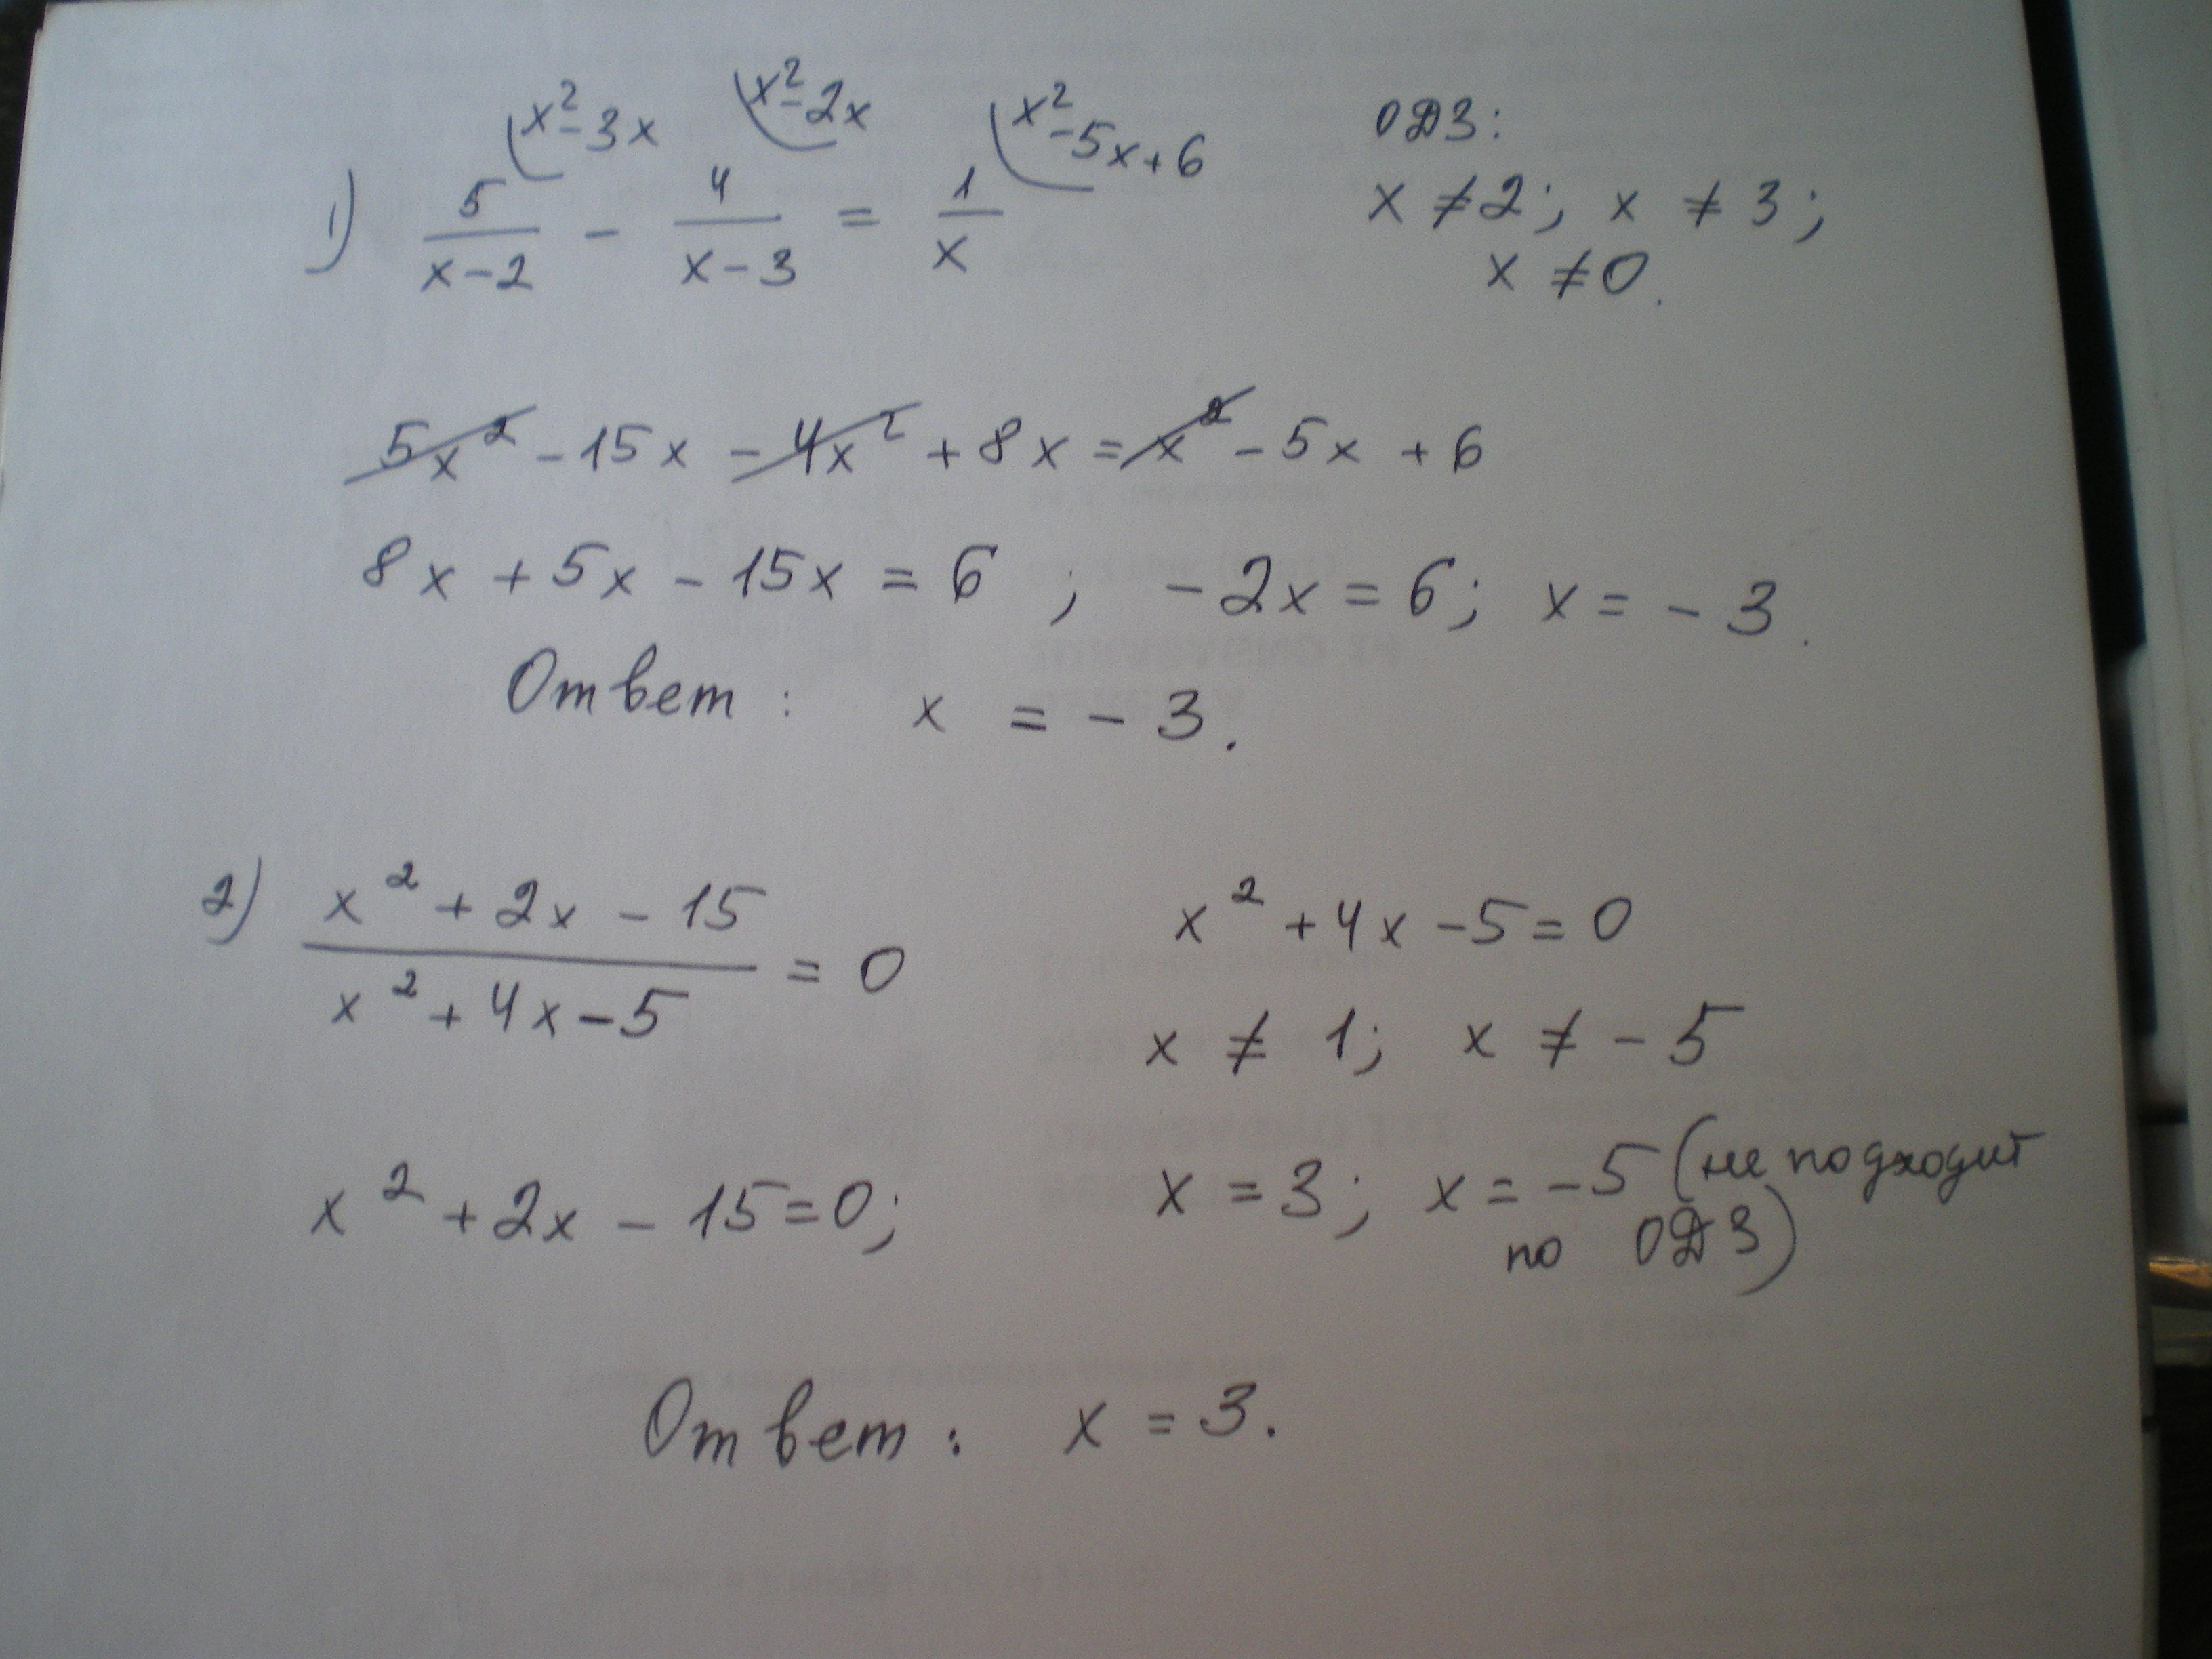 x² - 3x x² - 2x x² - 5x + 6 ОДЗ:
1) 5/(x-2) - 4/(x-3) = 1/x x ≠ 2; x ≠ 3;
x ≠ 0.
5x² - 15x - 4x² + 8x = x² - 5x + 6
8x + 5x - 15x = 6 ; -2x = 6; x = -3.
Ответ: x = -3.
2) (x² + 2x - 15)/(x² + 4x - 5) = 0 x² + 4x - 5 = 0
x ≠ 1; x ≠ -5
x² + 2x - 15 = 0; x = 3; x = -5 (не подходит
по ОДЗ)
Ответ: x = 3.